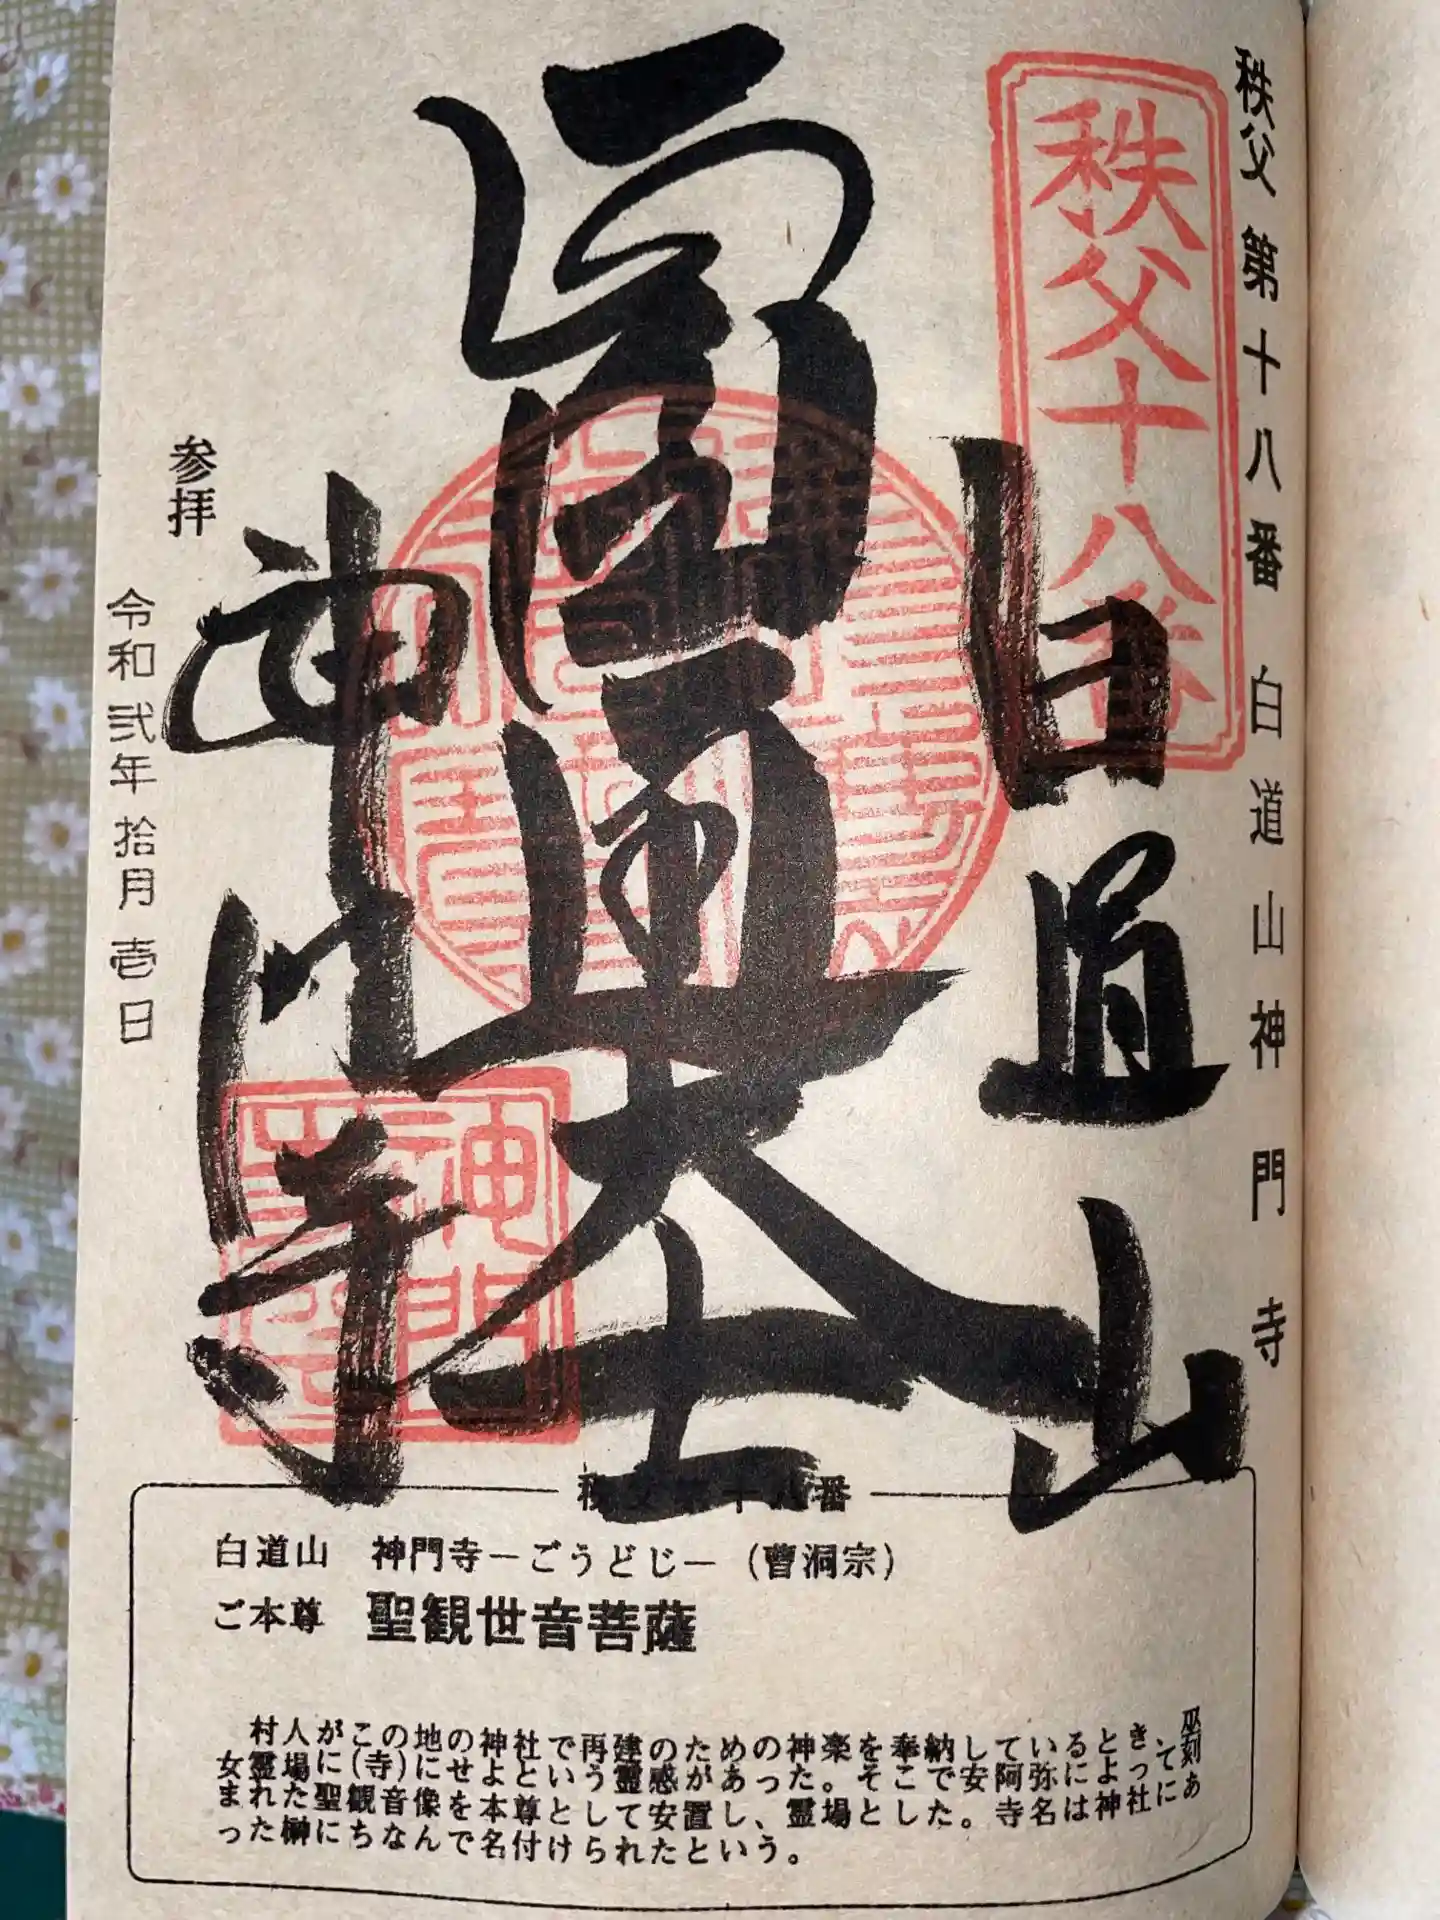 秩父第十八番 白道山神門寺
秩父十八番
白道山
圓通大士
神門寺
神門
参拝
令和弐年拾月壱日
秩父第十八番
白道山 神門寺―ごうどじ―(曹洞宗)
ご本尊 聖観世音菩薩
村人がこの地の神社で再建のための神楽を奉納しているとき、巫
女霊場に(寺)にせよという霊感があった。そこで安阿弥によって刻
まれた聖観音像を本尊として安置し、霊場とした。寺名は神社にあ
った榊にちなんで名付けられたという。